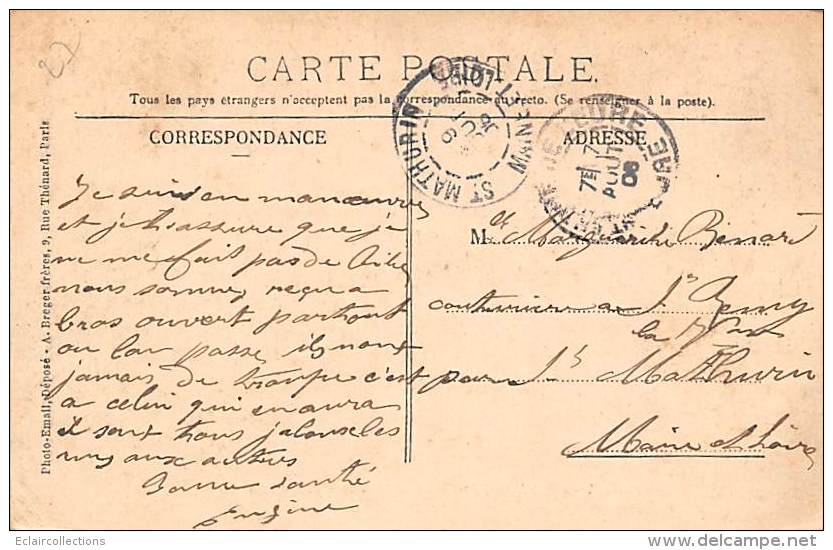 27
CARTE POSTALE.
Tous les pays étrangers n'acceptent pas la correspondance au recto. (Se renseigner à la poste).
CORRESPONDANCE
ADRESSE
ST MATHURIN
MAINE-ET-LOIRE
EURE
7E
17
AOUT
08
Photo-Email, Déposé - A. Breger frères, 9, Rue Thénard, Paris
Je suis en manœuvres
et je t'assure que je
ne me fait pas de bile
nous sommes reçu a
bras ouvert partout
ou lon passe ils nont
jamais de troupe c'est
a celui qui en aura
il sont tous jalouse les
uns aux autres
Bonne santé
Eugène
Melle Marguerite Benard
couturière a St Remy
la Varenne
par St Mathurin
Maine et Loire
Eclaircollections
delcampe.net